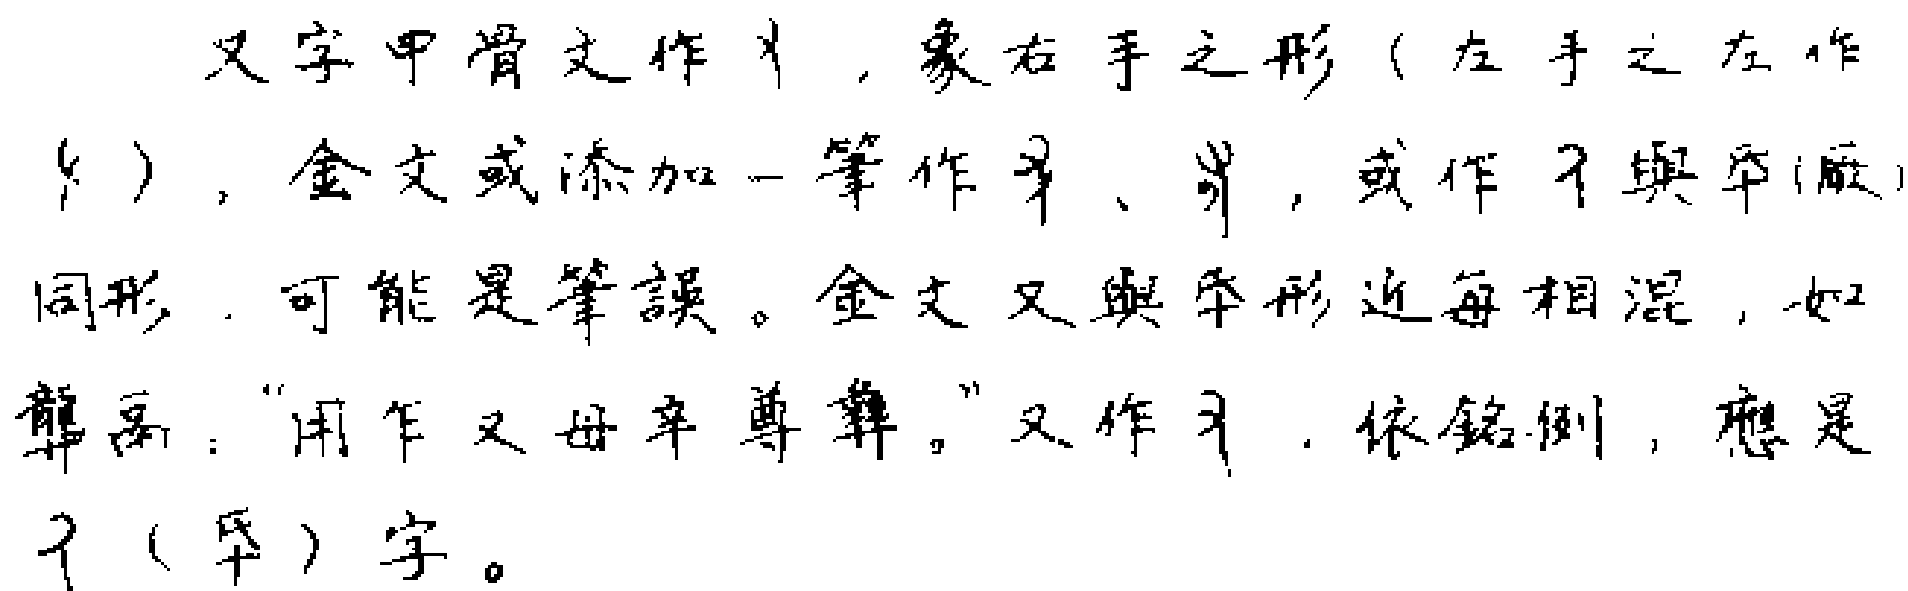 又字甲骨文作，象右手之形（左手之左作
），金文或添加一筆作、，或作與氒（厥）
同形，可能是筆誤。金文又與氒形近每相混，如
龏鬲：“用乍又母辛尊彝。”又作，依銘例，應是
（氒）字。